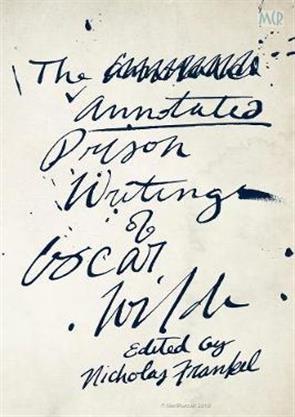 MCR
The
Annotated
Prison
Writings
of
Oscar
Wilde
Edited by
Nicholas Frankel